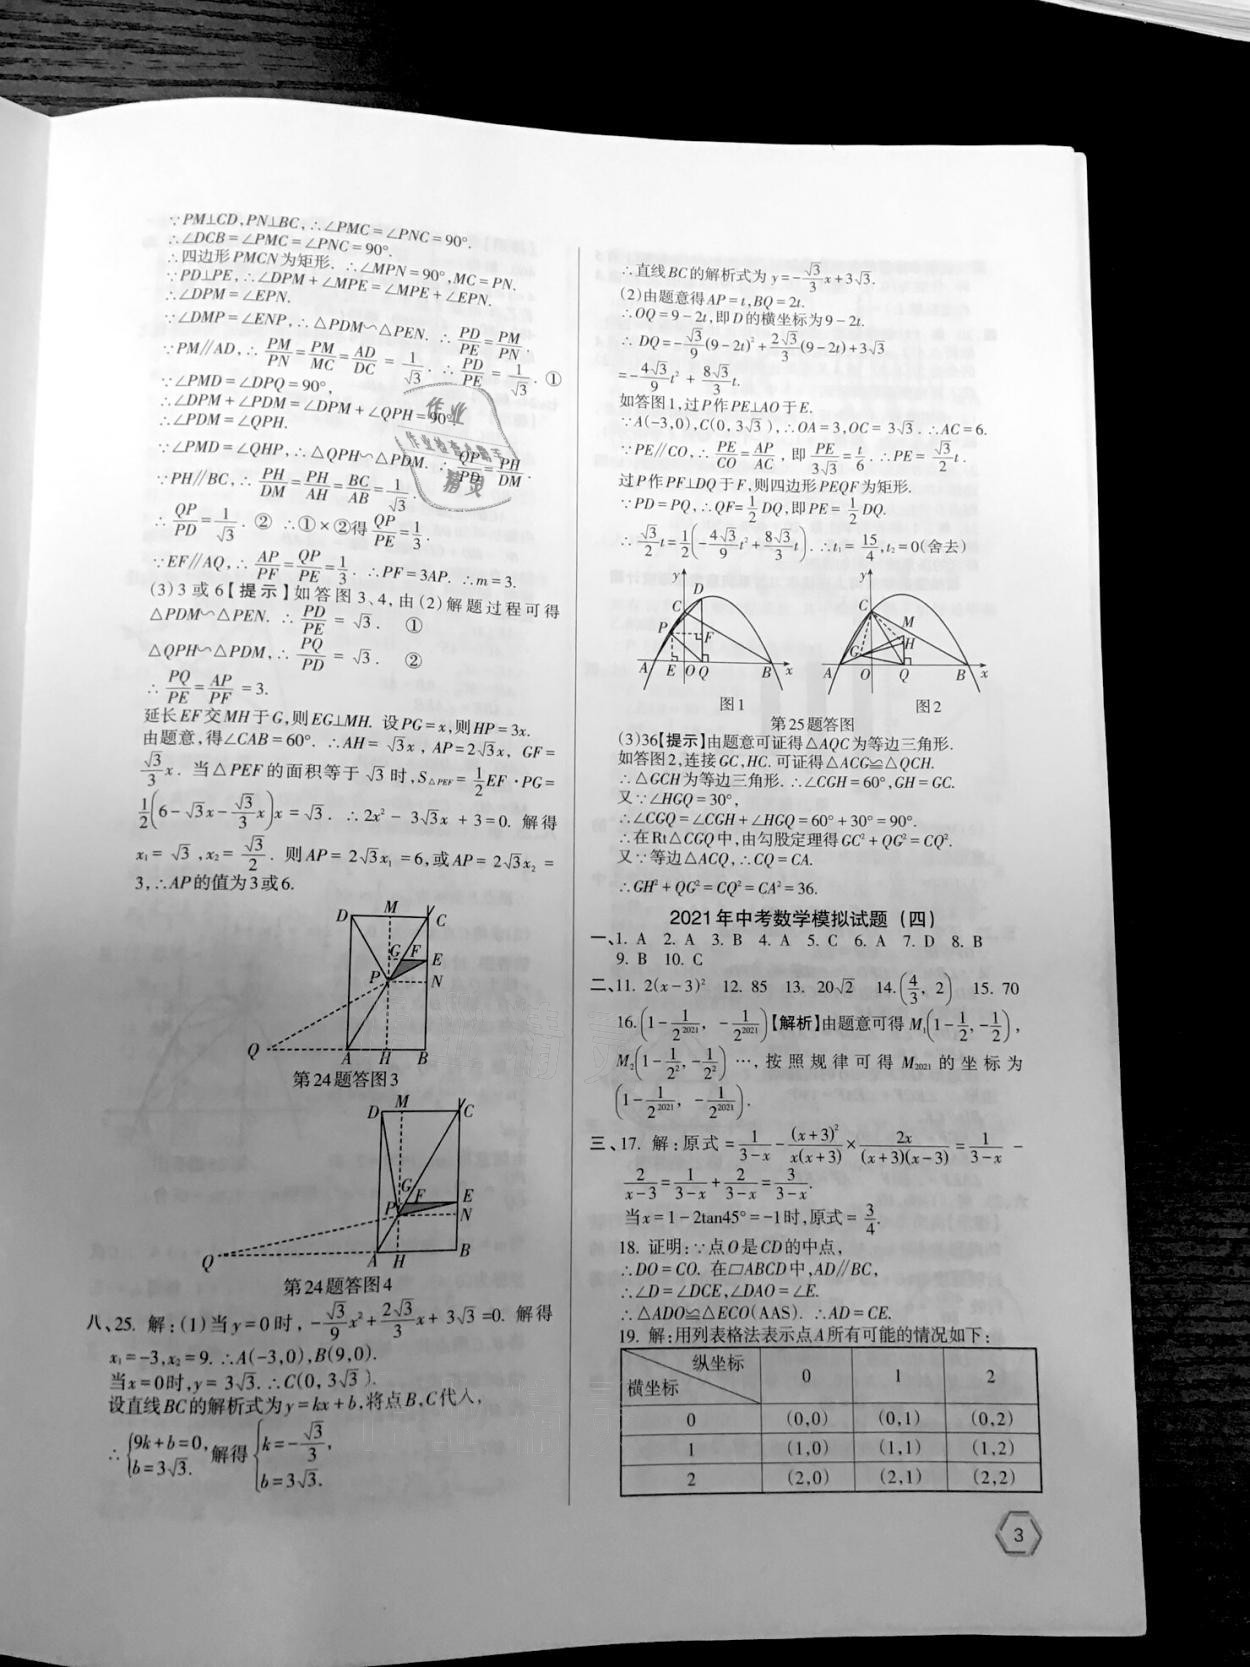 ∵PM⊥CD,PN⊥BC,∴∠PMC=∠PNC=90°.
∴∠DCB=∠PMC=∠PNC=90°.
∴四边形PMCN为矩形. ∴∠MPN=90°,MC=PN.
∵PD⊥PE,∴∠DPM+∠MPE=∠MPE+∠EPN.
∴∠DPM=∠EPN.
∵∠DMP=∠ENP,∴△PDM∽△PEN. ∴PD/PE=PM/PN.
∵PM∥AD,∴PM/PN=PM/MC=AD/DC=1/√3. ∴PD/PE=1/√3. ①
∵∠PMD=∠DPQ=90°,
∴∠DPM+∠PDM=∠DPM+∠QPH=90°.
∴∠PDM=∠QPH.
∵∠PMD=∠QHP,∴△QPH∽△PDM. ∴QP/PD=PH/DM.
∵PH∥BC,∴PH/DM=PH/AH=BC/AB=1/√3.
∴QP/PD=1/√3. ② ∴①×②得QP/PE=1/3.
∵EF∥AQ,∴AP/PF=QP/PE=1/3. ∴PF=3AP. ∴m=3.
(3)3或6【提示】如答图3、4,由(2)解题过程可得
△PDM∽△PEN. ∴PD/PE=√3. ①
△QPH∽△PDM,∴PQ/PD=√3. ②
∴PQ/PE=AP/PF=3.
延长EF交MH于G,则EG⊥MH. 设PG=x,则HP=3x.
由题意,得∠CAB=60°. ∴AH=√3x, AP=2√3x, GF=
√3/3x. 当△PEF的面积等于√3时,S△PEF=1/2EF·PG=
1/2(6-√3x-√3/3x)x=√3. ∴2x²-3√3x+3=0. 解得
x₁=√3,x₂=√3/2. 则AP=2√3x₁=6,或AP=2√3x₂=
3,∴AP的值为3或6.
D M C
G F E
P N
Q A H B
第24题答图3
D M C
G F E
P N
Q A H B
第24题答图4
八、25. 解:(1)当y=0时,-√3/9x²+2√3/3x+3√3=0. 解得
x₁=-3,x₂=9. ∴A(-3,0),B(9,0).
当x=0时,y=3√3. ∴C(0,3√3).
设直线BC的解析式为y=kx+b,将点B,C代入,
∴{9k+b=0, b=3√3. 解得{k=-√3/3, b=3√3.
作业
作业检查小助手
精灵
∴直线BC的解析式为y=-√3/3x+3√3.
(2)由题意得AP=t,BQ=2t.
∴OQ=9-2t,即D的横坐标为9-2t.
∴DQ=-√3/9(9-2t)²+2√3/3(9-2t)+3√3
=-4√3/9t²+8√3/3t.
如答图1,过P作PE⊥AO于E.
∵A(-3,0),C(0,3√3),∴OA=3,OC=3√3. ∴AC=6.
∵PE∥CO,∴PE/CO=AP/AC,即PE/3√3=t/6. ∴PE=√3/2t.
过P作PF⊥DQ于F,则四边形PEQF为矩形.
∵PD=PQ,∴QF=1/2DQ,即PE=1/2DQ.
∴√3/2t=1/2(-4√3/9t²+8√3/3t). ∴t₁=15/4,t₂=0(舍去)
y D C P F A E O Q B x
图1
y C M H G A O Q B x
图2
第25题答图
(3)36【提示】由题意可证得△AQC为等边三角形.
如答图2,连接GC,HC. 可证得△ACG≌△QCH.
∴△GCH为等边三角形. ∴∠CGH=60°,GH=GC.
又∵∠HGQ=30°,
∴∠CGQ=∠CGH+∠HGQ=60°+30°=90°.
∴在Rt△CGQ中,由勾股定理得GC²+QG²=CQ².
又∵等边△ACQ,∴CQ=CA.
∴GH²+QG²=CQ²=CA²=36.
2021年中考数学模拟试题(四)
一、1. A 2. A 3. B 4. A 5. C 6. A 7. D 8. B
9. B 10. C
二、11. 2(x-3)² 12. 85 13. 20√2 14.(4/3, 2) 15. 70
16.(1-1/2²⁰²¹, -1/2²⁰²¹)【解析】由题意可得M₁(1-1/2,-1/2),
M₂(1-1/2²,-1/2²)…,按照规律可得M₂₀₂₁的坐标为
(1-1/2²⁰²¹, -1/2²⁰²¹).
三、17. 解:原式=1/(3-x)-(x+3)²/x(x+3)×2x/(x+3)(x-3)=1/(3-x)-
2/(x-3)=1/(3-x)+2/(3-x)=3/(3-x).
当x=1-2tan45°=-1时,原式=3/4.
18. 证明:∵点O是CD的中点,
∴DO=CO. 在▱ABCD中,AD∥BC,
∴∠D=∠DCE,∠DAO=∠E.
∴△ADO≌△ECO(AAS). ∴AD=CE.
19. 解:用列表格法表示点A所有可能的情况如下:
纵坐标 横坐标 0 1 2
0 (0,0) (0,1) (0,2)
1 (1,0) (1,1) (1,2)
2 (2,0) (2,1) (2,2)
3